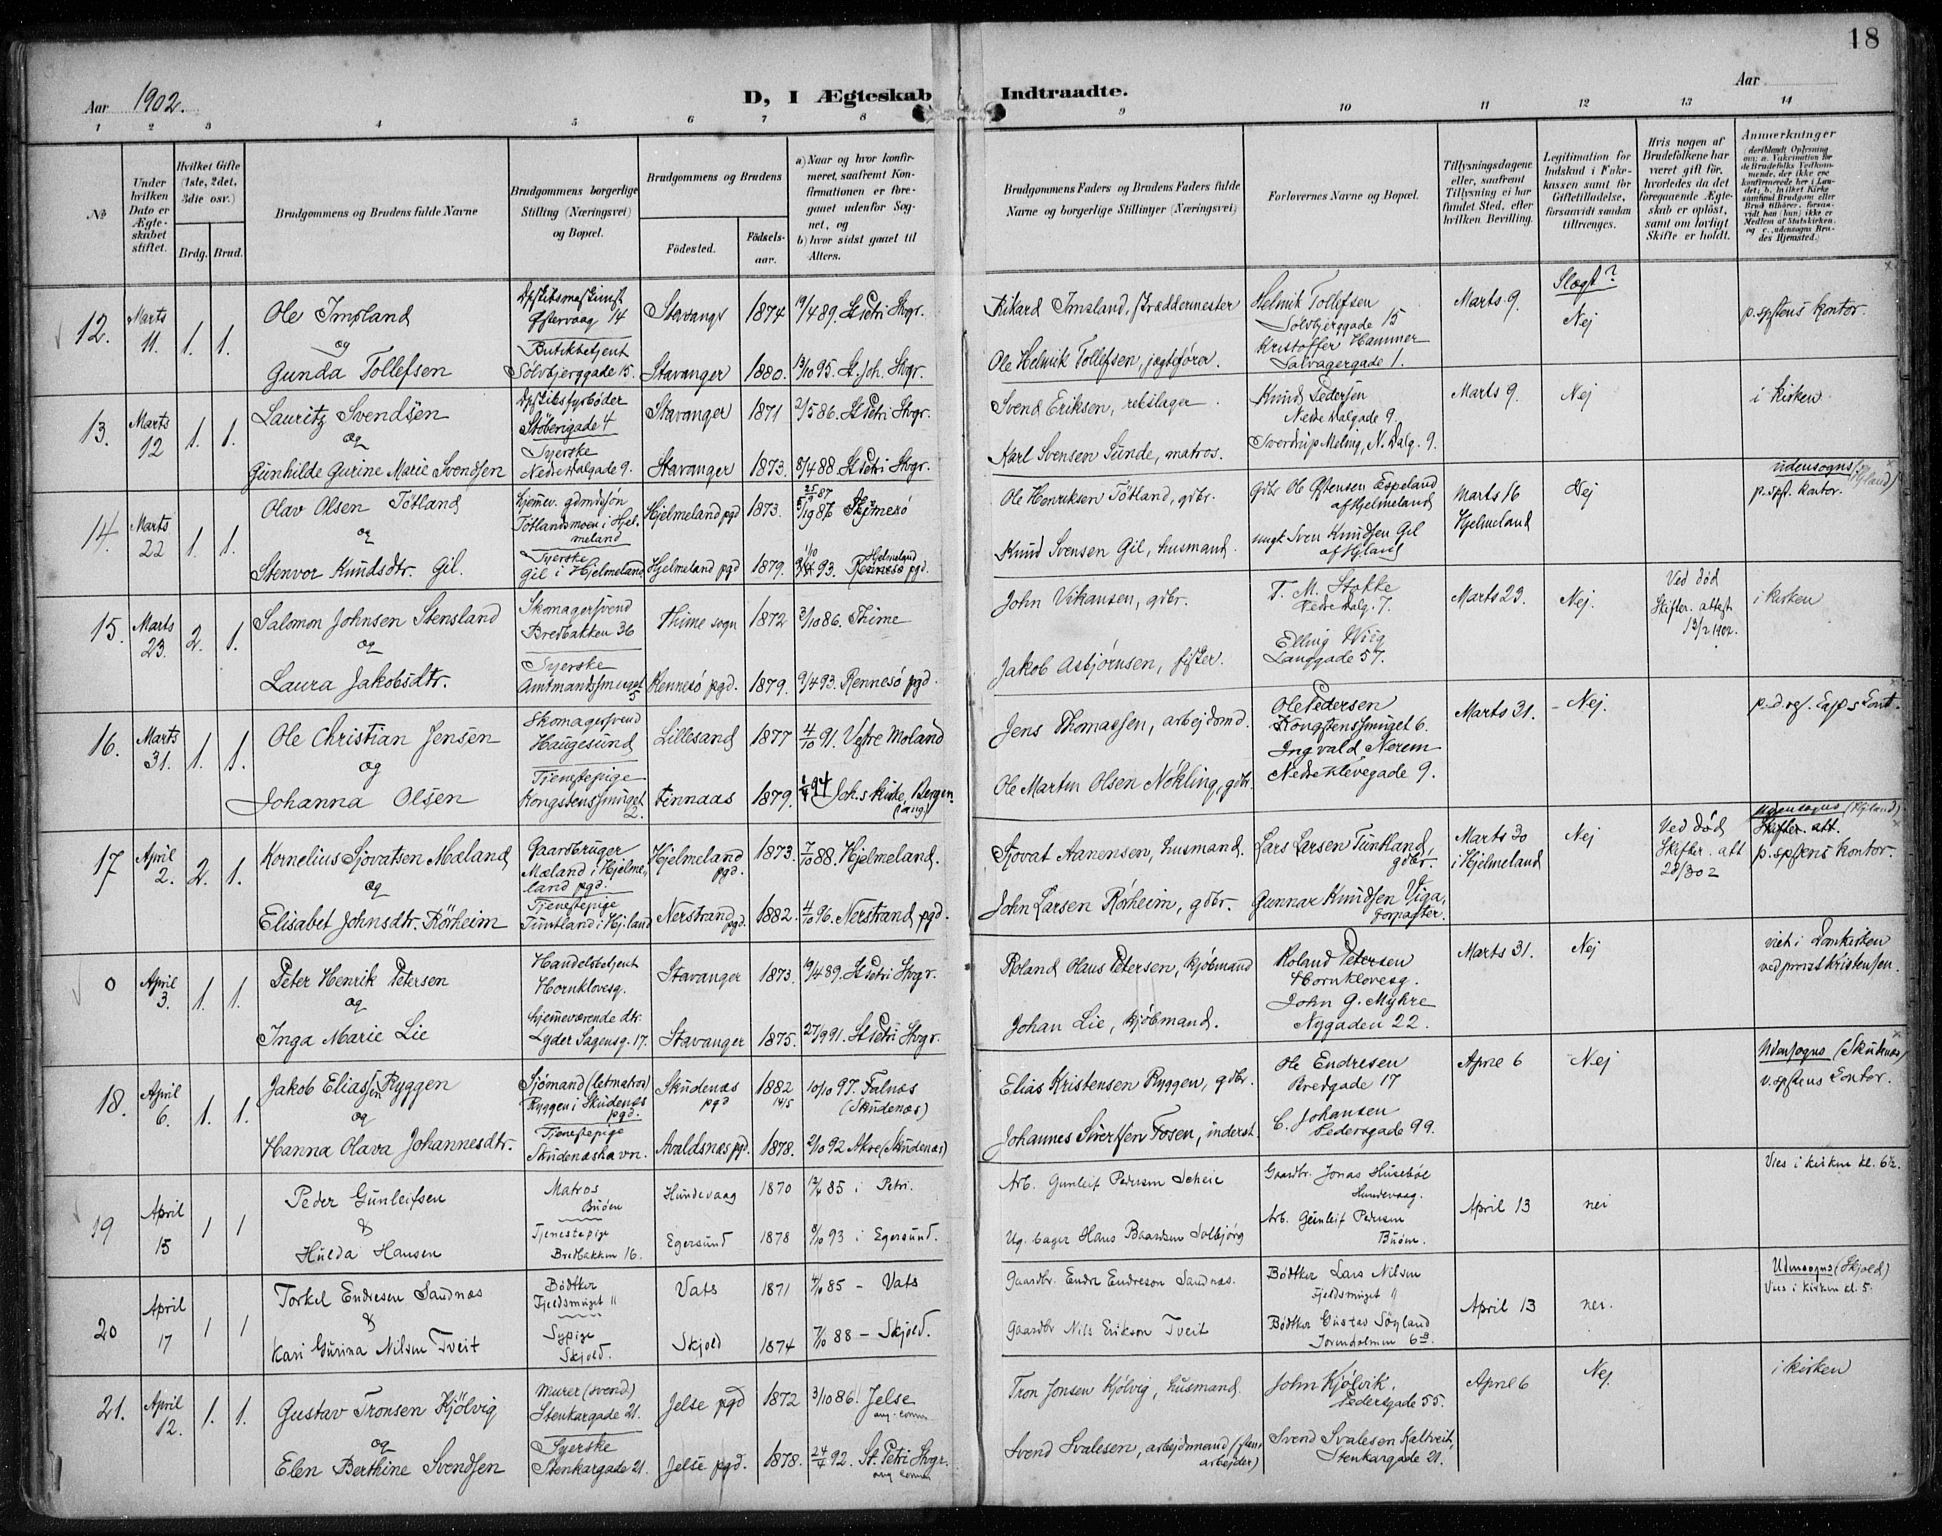 18
Aar 1902.
D, I Ægteskab Indtraadte.
Aar
1 2 3 4 5 6 7 8 9 10 11 12 13 14
No
Under hvilken Dato er Ægteskabet stiftet.
Hvilket Gifte (1ste, 2det, 3die osv.)
Brdg. Brud.
Brudgommens og Brudens fulde Navne
Brudgommens borgerlige Stilling (Næringsvei) og Bopæl.
Brudgommens og Brudens
Födested. Födselsaar.
a) Naar og hvor konfirmeret, saafremt Konfirmationen er foregaaet udenfor Sognet, og
b) hvor sidst gaaet til Alters.
Brudgommens Faders og Brudens Faders fulde Navne og borgerlige Stillinger (Næringsvei)
Forlovernes Navne og Bopæl.
Tillysningsdagene eller, saafremt Tillysning ei har fundet Sted, efter hvilken Bevilling.
Legitimation for Indskud i Enkekassen samt for Giftetilladelse, forsaavidt saadan tiltrænges.
Hvis nogen af Brudefolkene har været gift för, hvorledes da det foregaaende Ægteskab er oplöst, samt om lovligt Skifte er holdt.
Anmerkninger
12. Marts 11. 1. 1.
Ole Imsland
og
Gunda Tollefsen
Östervaag 14
Butikbetjent
Sölvbjerggade 15.
Stavangr 1874 19/4 89. St Petri Stvgr.
Stavanger 1880. 13/10 95. St. Joh. Stvgr.
Rikard Imsland, skræddermester
Ole Helmik Tollefsen, jægtefører.
Helmik Tollefsen
Sölvbjerggade 15
Kristoffer Hammer
Salvagergade 1.
Marts 9. Slægt? Nej
p. spstens kontor.
13. Marts 12 1. 1.
Lauritz Svendsen
og
Gunhilde Gurine Marie Svendsen
Støberigade 4
Syerske
Nedre Dalgade 9.
Stavanger 1871 2/5 86. St Petri Stvgr.
Stavanger 1873. 8/4 88 St Petri Stvgr.
Svend Eriksen, rebslager
Karl Svensen Sunde, matros.
Knud Pedersen
Nedre Dalgade 9.
Sverdrup Meling, N. Dalg. 9.
Marts 9. Nej
i kirken
14. Marts 22 1. 1.
Olav Olsen Tötland
og
Stenvor Knudsdtr. Gil.
hjemev. gdmdssön
Tötlandsmoen i Hjelmeland
Syerske
Gil i Hjelmeland
Hjelmeland pgd 1873.
Hjelmeland pgd 1879. Hjelmeland pgd.
Ole Henriksen Tötland, gdbr.
Knud Svensen Gil, husmand.
Gdbr. Ole Östensen Espeland
af Hjelmeland
ungk Sven Knudsen Gil
af Hjland
Marts 16
Hjelmeland
Nej
udensogns (Hjland)
p. spst. kontor.
15. Marts 23. 2. 1.
Salomon Johnsen Stensland
og
Laura Jakobsdtr.
Skomagersvend
Bredbakken 36
Syerske
Amtmandssmuget 5
Thime sogn 1872 3/10 86. Thime
Rennesö pgd. 1879. 9/4 93. Rennesö pgd.
John Vikansen, gdbr.
Jakob Asbjörnsen, fisker.
T. M. Stakke
Nedre Dalg. 7.
Elling Wiig
Langgade 57.
Marts 23. Nej.
Ved död
Skifter. attest
13/2 1902.
i kirken
16. Marts 31. 1. 1.
Ole Christian Jensen
og
Johanna Olsen
Skomagersvend
Haugesund
Tjenestepige
Kongstenssmuget 2.
Lillesand 1877 4/10 91. Vestre Moland
Finnaas 1879. Joh.s kirke, Bergen
Jens Thomassen, arbejdsmd.
Ole Martin Olsen Nökling, gdbr.
Ole Pedersen
Kongstenssmuget 6.
Ingvald Nerem
Nedre Klevegade 9.
Marts 31. Nej.
p. d. res. Caps Cont.
17 April 2. 2. 1.
Kornelius Sjovatsen Mæland
og
Elisabet Johnsdtr. Rörheim
Gaardbruger
Mæland i Hjelmeland pgd.
Tjenestepige
Tuntland i Hj.land
Hjelmeland pgd. 1873. 7/10 88. Hjelmeland.
Nerstrand pgd. 1882. 4/10 96. Nerstrand pgd.
Sjovat Aanensen, husmand.
John Larsen Rörheim, gdbr.
Lars Larsen Tuntland, gdbr.
Gunnar Knudsen Viga, forpagter.
Marts 30
i Hjelmeland
Nej
Ved död
Skifter. att
Udensogns (Hjland)
Skifter. att.
p. spstens kontor.
0 April 3. 1. 1.
Peter Henrik Petersen
og
Inga Marie Lie
Handelsbetjent
Hornklovesg.
hjemeværende dtr.
Lyder Sagensg. 17.
Stavanger 1873. 19/4 89. St Petri Stvgr.
Stavanger 1875. 27/9 91. St Petri Stvgr.
Roland Olaus Petersen, kjöbmand
Johan Lie, kjöbmand.
Roland Petersen
Hornklovesg.
John G. Myhre
Nygaden 22.
Marts 31. Nej
viet i Domkirken
ved prost Kristensen.
18. April 6. 1. 1.
Jakob Eliassen Ryggen
og
Hanna Olava Johannesdtr.
Sjömand (letmatros)
Ryggen i Skudenes pgd.
Tjenestepige
Skudenæshavn.
Skudenæs pgd 1882 14/5 10/10 97. Falnæs (Skudenæs)
Avaldsnæs pgd. 1878. 2/10 92 Akre (Skudenæs)
Elias Kristensen Ryggen, gdbr.
Johannes Sivertsen Fosen, inderst.
Ole Endresen
Bredgade 17
C. Johansen
Pedersgade 99.
April 6 Nej
Udensogns (Skudnæs)
v. spstens Contor.
19 April 15 1 1
Peder Gunleifsen
&
Hulda Hansen
Matros
Buöen
Tjenestepige
Bredbakken 16.
Hundevaag 1870 85 i Petri.
Egersund 1878 8/10 93 i Egersund.
Arb. Gunleif Pedersen Scheie
Ug. bager Hans Baardsen Solbjörg
Gaardbr. Jonas Husebøe
Hundevaag.
Arb. Gunleif Pedersen
Buöen.
April 13 nei
Vies i kirken kl. 6½.
20 April 17 1 1
Torkel Endresen Sandnæs
&
Kari Gurina Nilsen Tveit
Bödtker
Fjeldsmuget 11
Sypige
Skjold.
Vats 1871 4/10 85 – Vats
Skjold 1874 7/10 88 – Skjold.
Gaardbr. Endre Endreson Sandnæs.
Gaardbr Nils Erikson Tveit
Bödtker Lars Nilsen
Fjeldsmuget 9
Bödtker Gustav Söyland
Jorenholmen
April 13 nei.
Udensogns (Skjold)
Vies i kirken kl. 5.
21. April 12. 1. 1.
Gustav Tronsen Kjölvig
og
Elen Berthine Svendsen
Murer (svend)
Stenkargade 21.
Syerske
Stenkargade 21.
Jelse pgd 1872 3/10 86! Jelse
Jelse pgd. 1878. 24/4 92. St. Petri Stvgr.
Tron Jonsen Kjölvig, husmand.
Svend Svalesen, arbejdsmand (stenarbejder)
John Kjölvik.
Pedersgade 55.
Svend Svalesen Kaltveit,
Stenkargade 21.
April 6 Nej.
i kirken